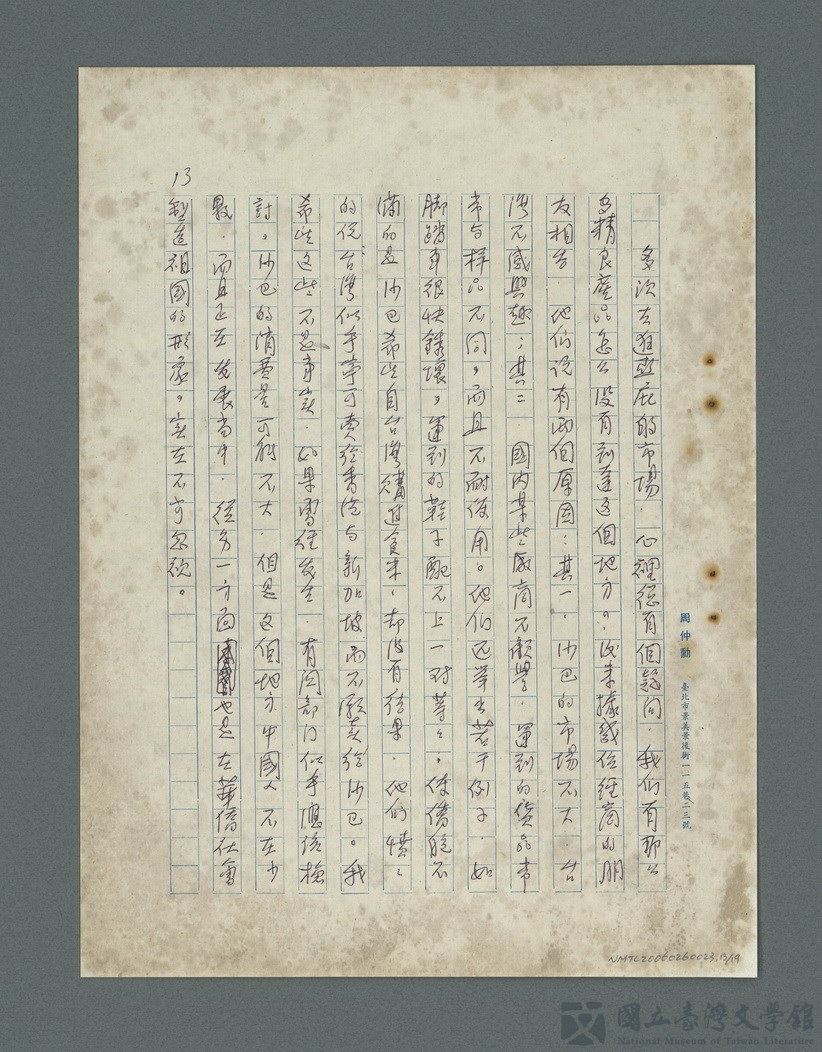 周仲勳 臺北市景美景後街一一五巷二三號
多次去逛亞庇的市場，心裡總有個疑問，我們有那么
多精良產品怎么沒有到達這個地方？後來據幾位經商的朋
友相告，他們說有兩個原因：其一，沙巴的市場不大，台
灣不感興趣；其二，國內某些廠商不顧學，運到的貨品常
常与樣品不同，而且不耐使用。他們還舉出若干例子，如
脚踏車很快銹壞，運到的鞋子配不上一对等々，使僑胞不
滿的是沙巴希望自台灣購進食米，却沒有結果，他們憤々
的說台灣似乎寧可賣給香港与新加坡而不願賣給沙巴。我
希望這些不是事實，如果曾經發生，有関部门似乎應該檢
討。沙巴的消費量可能不大，但是這個地方中國人不在少
數，而且正在發展当中，從另一方面也是在華僑社會
13
制造祖國的形象，实在不可忽視。
NMTL20060260023, 13/19
國立臺灣文學館
National Museum of Taiwan Literature